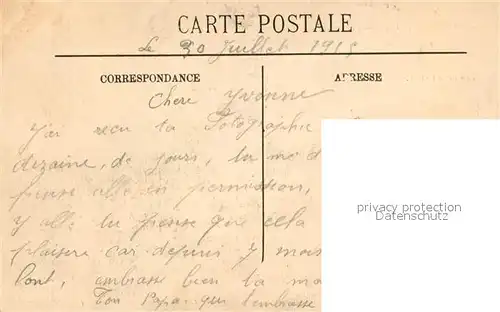 CARTE POSTALE
Le 30 Juillet 1915
CORRESPONDANCE
ADRESSE
Chere Yvonne
J'ai recu ta Fotographie
dizaine, de jours, tu me d
pense allé en permission,
y allé tu pense que cela
plaisera car depuis 7 mois
embrasse bien ta ma
Ton Papa qui t'embrasse
privacy protection
Datenschutz